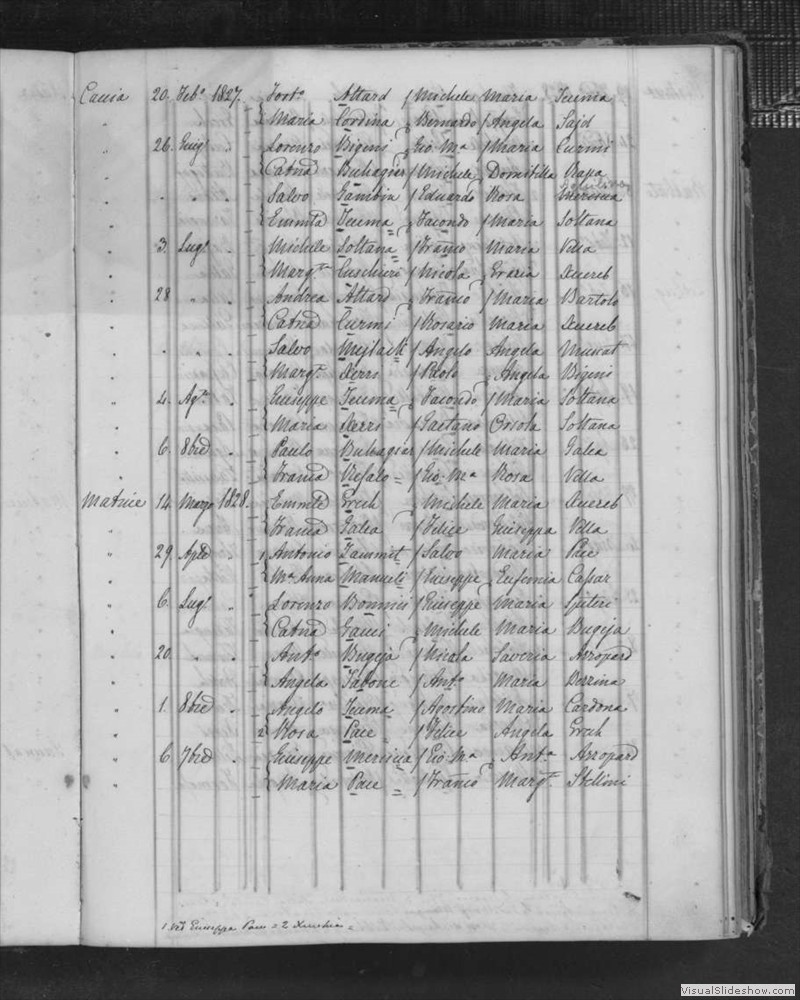 Caccia 20. Feb.o 1827. Fort.o Attard / Michele Maria Teuma
" Maria Cordina Bernardo / Angela Sajd
" 26. Giug.o " Lorenzo Bigeni Gio M.a / Maria Curmi
" Cat.na Buhagiar / Michele Domitilla Rapa
" " " " Salvo Gambin / Eduardo Rosa
" Emm.la Teuma = / Facondo / Maria Soltana
" 3. Lug.o " Michele Soltana = / Fran.co Maria Vella
" Marg.ta Cuschieri / Nicola Grazia Xuereb
" 28 " " Andrea Attard / Fran.co / Maria Bartolo
" Cat.na Curmi / Rosario Maria Xuereb
" " " " Salvo Mejlack / Angelo Angela Muscat
" Marg.ta Xerri / Paolo Angela Bigeni
" 4. Ag.to " Giuseppe Teuma = / Facondo / Maria Soltana
" Maria Xerri / Gaetano Orsola Soltana
" 6. 8bre " Paulo Buhagiar / Michele Maria Galea
" Fran.ca Refalo = / Gio M.a Rosa Vella
Matrice 14. Marzo 1828. Emm.le Grech Michele Maria Xuereb
" Fran.ca Galea / Felice Giuseppa Vella
" 29 Aple " 1 Antonio Zammit / Salvo Maria Pace
" M.a Anna / Giuseppe Eufemia Cassar
" 6. Lug.o " Lorenzo / Giuseppe Maria Spiteri
" Cat.na Gauci Michele Maria Bugeja
" 20. " " Ant.o Bugeja / Nicola Saveria Azzopard
" Angela Tabone / Ant.o Maria
" 1. 8bre " Angelo Teuma / Agostino Maria Cardona
" 2 Rosa Pace / Felice Angela Grech
" 6 7bre " Giuseppe Mercieca / Gio M.a Ant.a Azzopard
" Maria Pace = / Fran.co Marg.ta Stellini
Giuseppa Pace = 2
VisualSlideshow.com